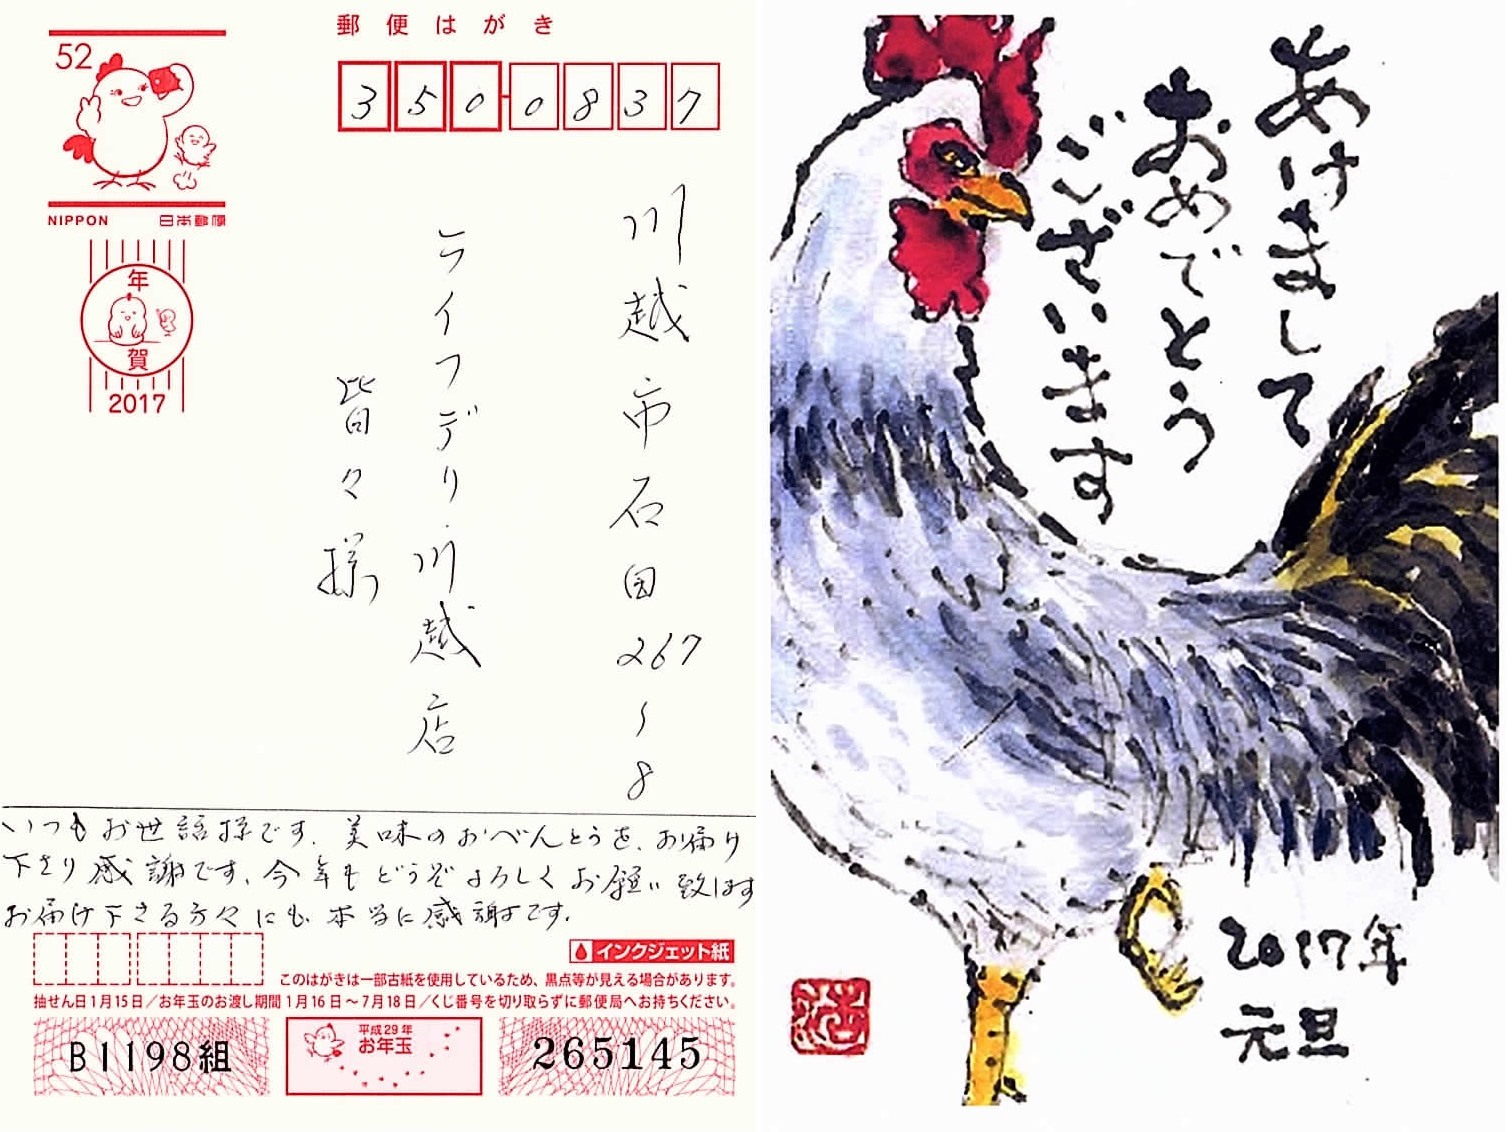 郵便はがき
52
NIPPON 日本郵便
年賀
2017
350-0837
川越市石田267-8
ライフデリ川越店
皆々様
いつもお世話様です。美味のおべんとうを、お届け
下さり感謝です、今年もどうぞよろしくお願い致します
お届け下さる方々にも本当に感謝です。
インクジェット紙
このはがきは一部古紙を使用しているため、黒点等が見える場合があります。
抽せん日1月15日／お年玉のお渡し期間1月16日〜7月18日／くじ番号を切り取らずに郵便局へお持ちください。
B1198組
平成29年
お年玉
265145
あけまして
おめでとう
ございます
2017年
元旦